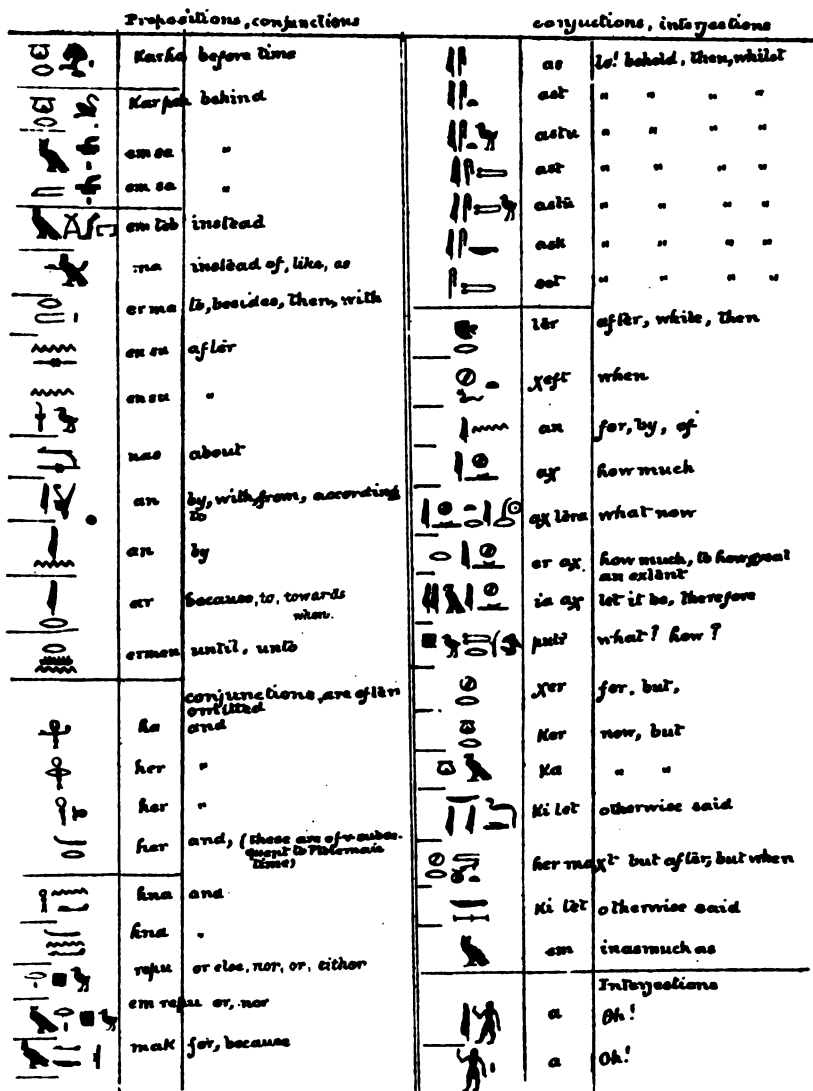 Prepositions, conjunctions
Karha before time
Karpeh behind
em sa "
em sa "
em tob instead
ma instead of, like, as
er ma to, besides, then, with
en su after
en su "
nas about
an by, with, from, according
to
an by
ar because, to, towards
when.
ermen until, unto
conjunctions, are often
omitted
ha and
her "
her "
her and, (these are of subse-
quent to Ptolemaic
time)
hna and
hna "
repu or else, nor, or, either
em repu or, nor
mak for, because
conjuctions, interjections
as lo! behold, then, whilst
ast " " " "
astu " " " "
ast " " " "
astu " " " "
ask " " " "
sat " " " "
ter after, while, then
xeft when
an for, by, of
ax how much
ax tera what now
er ax how much, to how great
an extent
ia ax let it be, therefore
putr what? how?
xer for, but,
Ker now, but
Ka " "
Ki tet otherwise said
her maxt but after, but when
Ki tet otherwise said
em inasmuch as
Interjections
a Oh!
a Oh!